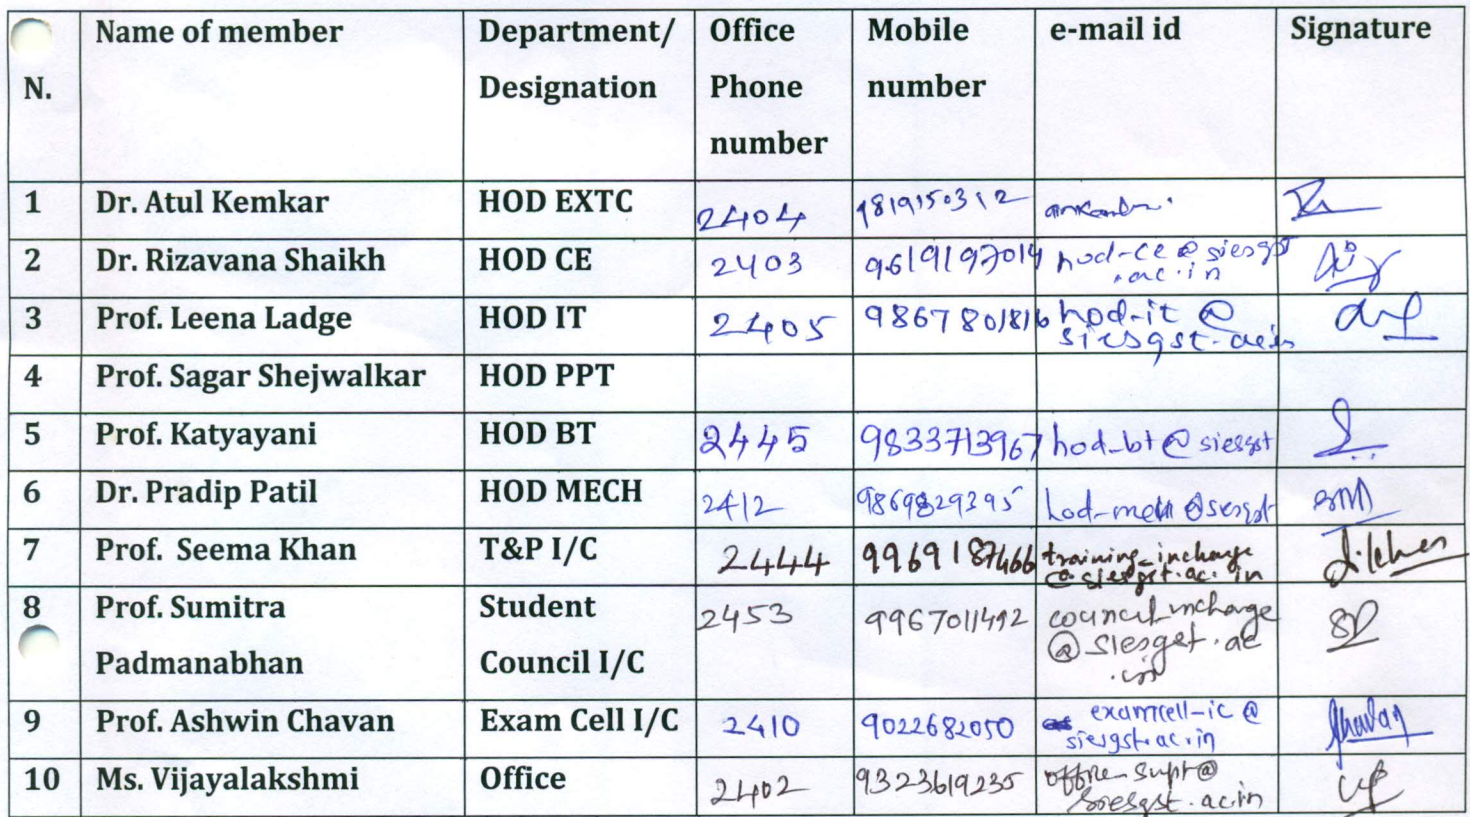 N. Name of member Department/ Designation Office Phone number Mobile number e-mail id Signature
1 Dr. Atul Kemkar HOD EXTC 2404 9819150312
2 Dr. Rizavana Shaikh HOD CE 2403 9619197014 hod-ce@siesgst.ac.in
3 Prof. Leena Ladge HOD IT 2405 9867801816 hod-it@siesgst.ac.in
4 Prof. Sagar Shejwalkar HOD PPT
5 Prof. Katyayani HOD BT 2445 9833713967 hod_bt@siesgst
6 Dr. Pradip Patil HOD MECH 2412 9869829395 hod-mech@siesgst
7 Prof. Seema Khan T&P I/C 2444 9969187466 training_incharge@siesgst.ac.in
8 Prof. Sumitra Padmanabhan Student Council I/C 2453 9967011492 councilincharge@siesgst.ac.in
9 Prof. Ashwin Chavan Exam Cell I/C 2410 9022682050 examcell-ic@siesgst.ac.in
10 Ms. Vijayalakshmi Office 2402 9323619235 office_supt@siesgst.ac.in